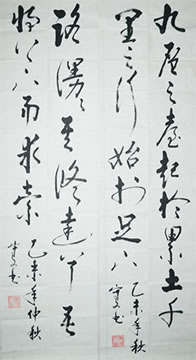 九層之臺起於累土千
里之行始於足下
乙未年秋
路漫漫其修遠兮吾
將上下而求索
乙未年仲秋